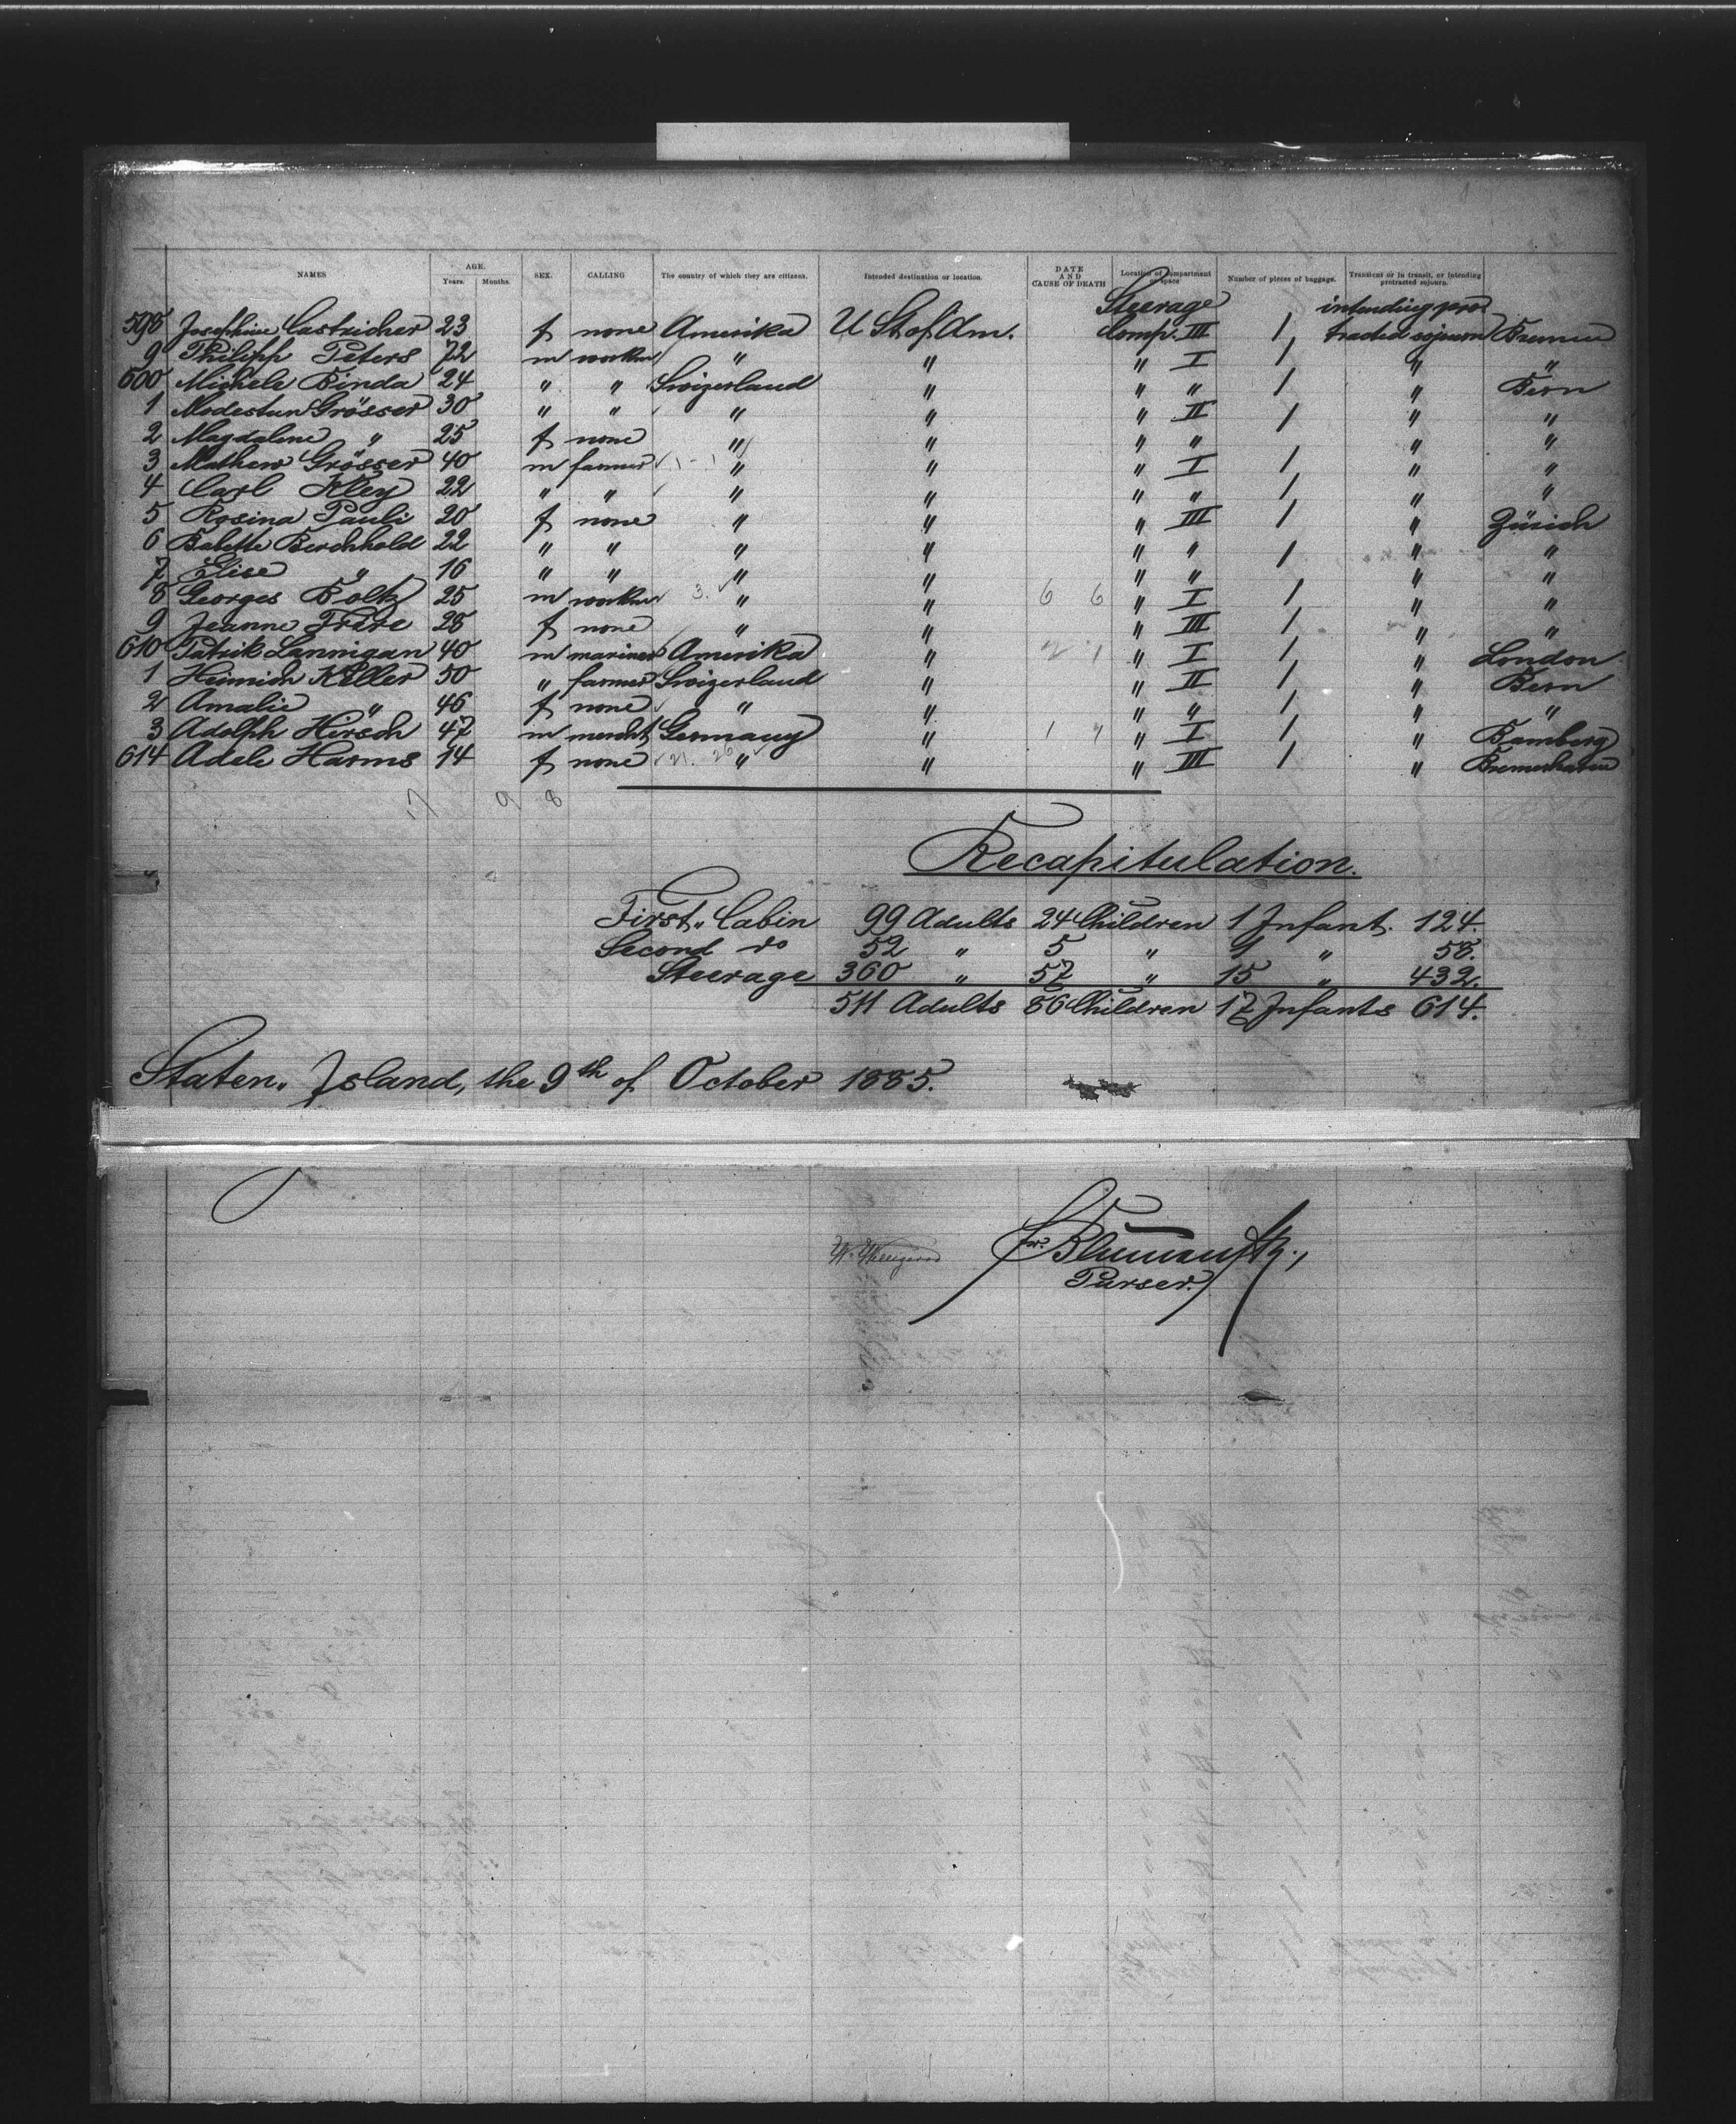 NAMES AGE. Years. Months. SEX. CALLING The country of which they are citizens. Intended destination or location. DATE AND CAUSE OF DEATH Location of compartment or space Number of pieces of baggage. Transient or in transit, or intending protracted sojourn.
Steerage intending pro
598 Josephine Castricher 23 f none Amerika U St of Am. Comp. III 1 tracted sojourn Bremen
9 Philipp Peters 72 m workm " " " I 1 " "
600 Michele Binda 24 " " Swizerland " " " 1 " Bern
1 Modestun Grösser 30 " " " " " II 1 " "
2 Magdalene " 25 f none " " " " 1 " "
3 Mathew Grösser 40 m farmer " " " I 1 " "
4 Carl Kley 22 " " " " " " 1 " "
5 Rosina Pauli 20 f none " " " III 1 " Zürich
6 Babette Berchhold 22 " " " " " " 1 " "
7 Elise " 16 " " " " " " " "
8 Georges Bolk 25 m workm 3. " " 6 6 " I 1 " "
9 Jeanne Frère 28 f none " " " III 1 " "
610 Patrik Lannigan 40 m mariner Amerika " 2 1 " I 1 " London
1 Heinrich Keller 50 " farmer Swizerland " " II 1 " Bern
2 Amalie " 46 f none " " " " 1 " "
3 Adolph Hirsch 47 m mercht Germany " 1 " I 1 " Bamberg
614 Adele Harms 14 f none 21. 26 " " " III 1 " Bremerhaven
17 9 8
Recapitulation.
First „ Cabin 99 Adults 24 Children 1 Infant. 124.
Second do 52 " 5 " 1 " 58.
Steerage 360 " 57 " 15 " 432.
511 Adults 86 Children 17 Infants 614.
Staten „ Island, the 9th of October 1885.
Purser.